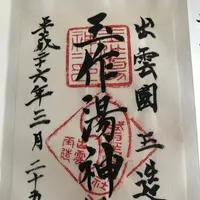 出雲國玉造
玉作湯神
平成二十六年三月二十五